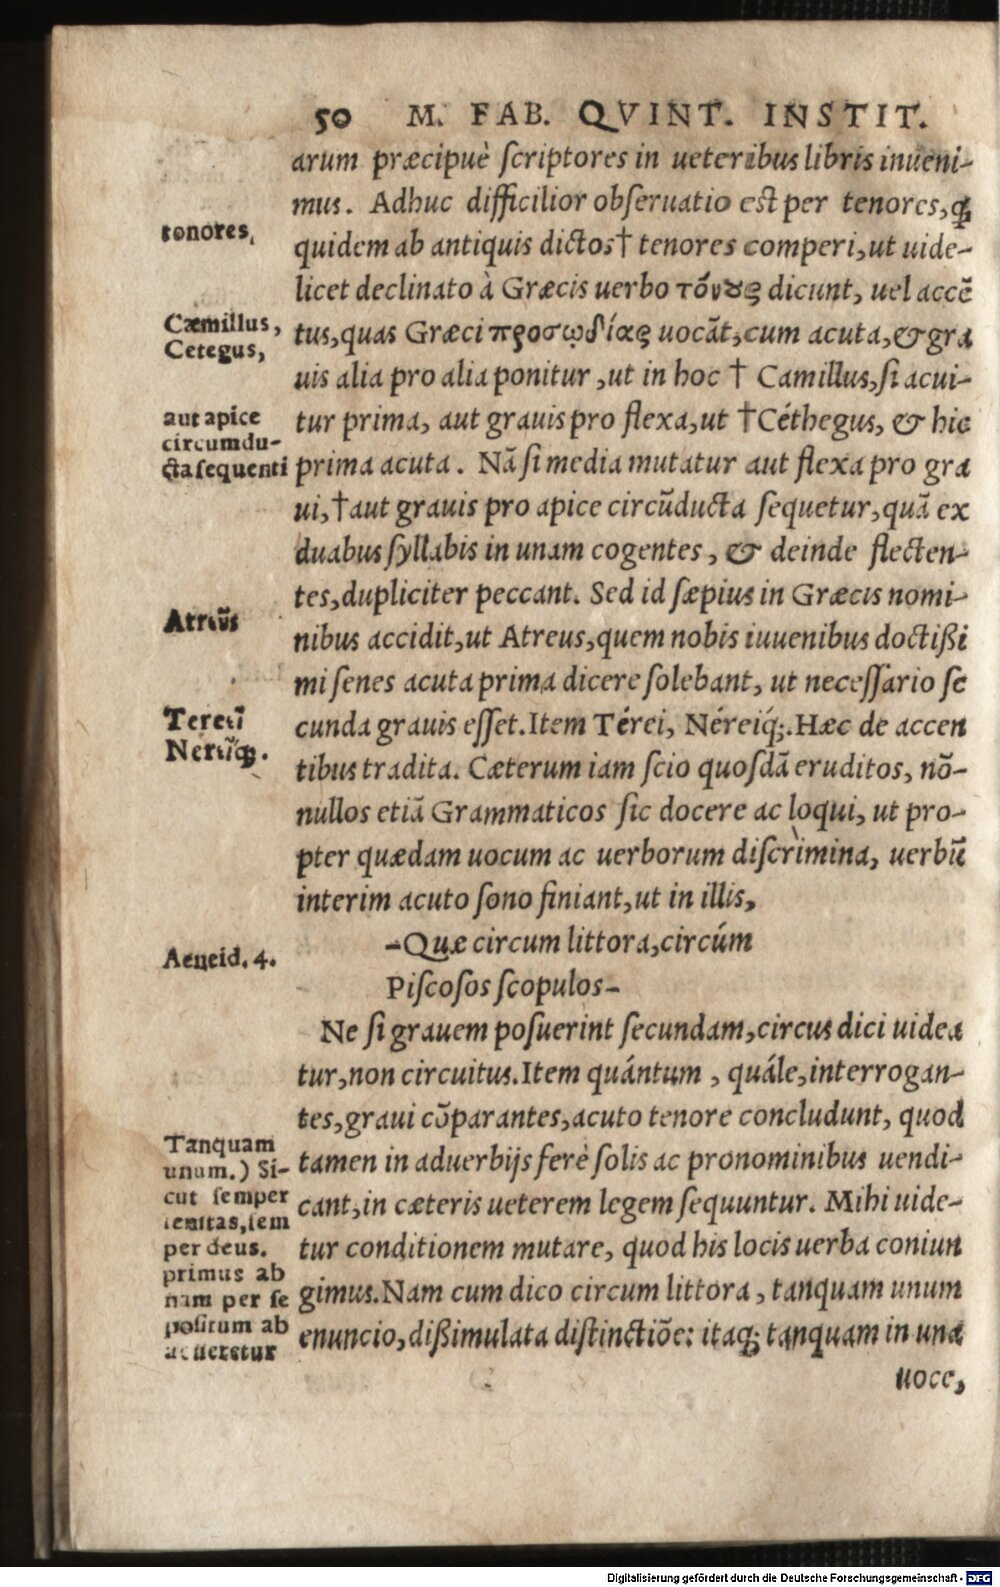 50 M. FAB. QVINT. INSTIT.
arum præcipuè scriptores in ueteribus libris inueni-
mus. Adhuc difficilior obseruatio est per tenores, ꝗ̃
quidem ab antiquis dictos† tenores comperi, ut uide-
licet declinato à Græcis uerbo τόνους dicunt, uel accẽ
tus, quas Græci προσῳδίας uocãt, cum acuta, & gra
uis alia pro alia ponitur, ut in hoc † Camillus, si acui-
tur prima, aut grauis pro flexa, ut †Céthegus, & hic
prima acuta. Nã si media mutatur aut flexa pro gra
ui, †aut grauis pro apice circũducta sequetur, quã ex
duabus syllabis in unam cogentes, & deinde flecten-
tes, dupliciter peccant. Sed id sæpius in Græcis nomi-
nibus accidit, ut Atreus, quem nobis iuuenibus doctißi
mi senes acuta prima dicere solebant, ut necessario se
cunda grauis esset. Item Térei, Néreiq́;. Hæc de accen
tibus tradita. Cæterum iam scio quosdã eruditos, nõ-
nullos etiã Grammaticos sic docere ac loqui, ut pro-
pter quædam uocum ac uerborum discrimina, uerbũ
interim acuto sono finiant, ut in illis,
-Quæ circum littora, circúm
Piscosos scopulos-
Ne si grauem posuerint secundam, circus dici uidea
tur, non circuitus. Item quántum, quále, interrogan-
tes, graui cõparantes, acuto tenore concludunt, quod
tamen in aduerbijs ferè solis ac pronominibus uendi-
cant, in cæteris ueterem legem sequuntur. Mihi uide-
tur conditionem mutare, quod his locis uerba coniun
gimus. Nam cum dico circum littora, tanquam unum
enuncio, dißimulata distinctiõe: itaq; tanquam in una
uoce,
tonores,
Cæmillus,
Cetegus,
aut apice
circumdu-
cta sequenti
Atreũs
Nereĩq;.
Aeneid. 4.
Tanquam
unum.) Si-
cut semper
lenitas, sem
per deus.
primus ab
nam per se
positum ab
Digitalisierung gefördert durch die Deutsche Forschungsgemeinschaft - DFG